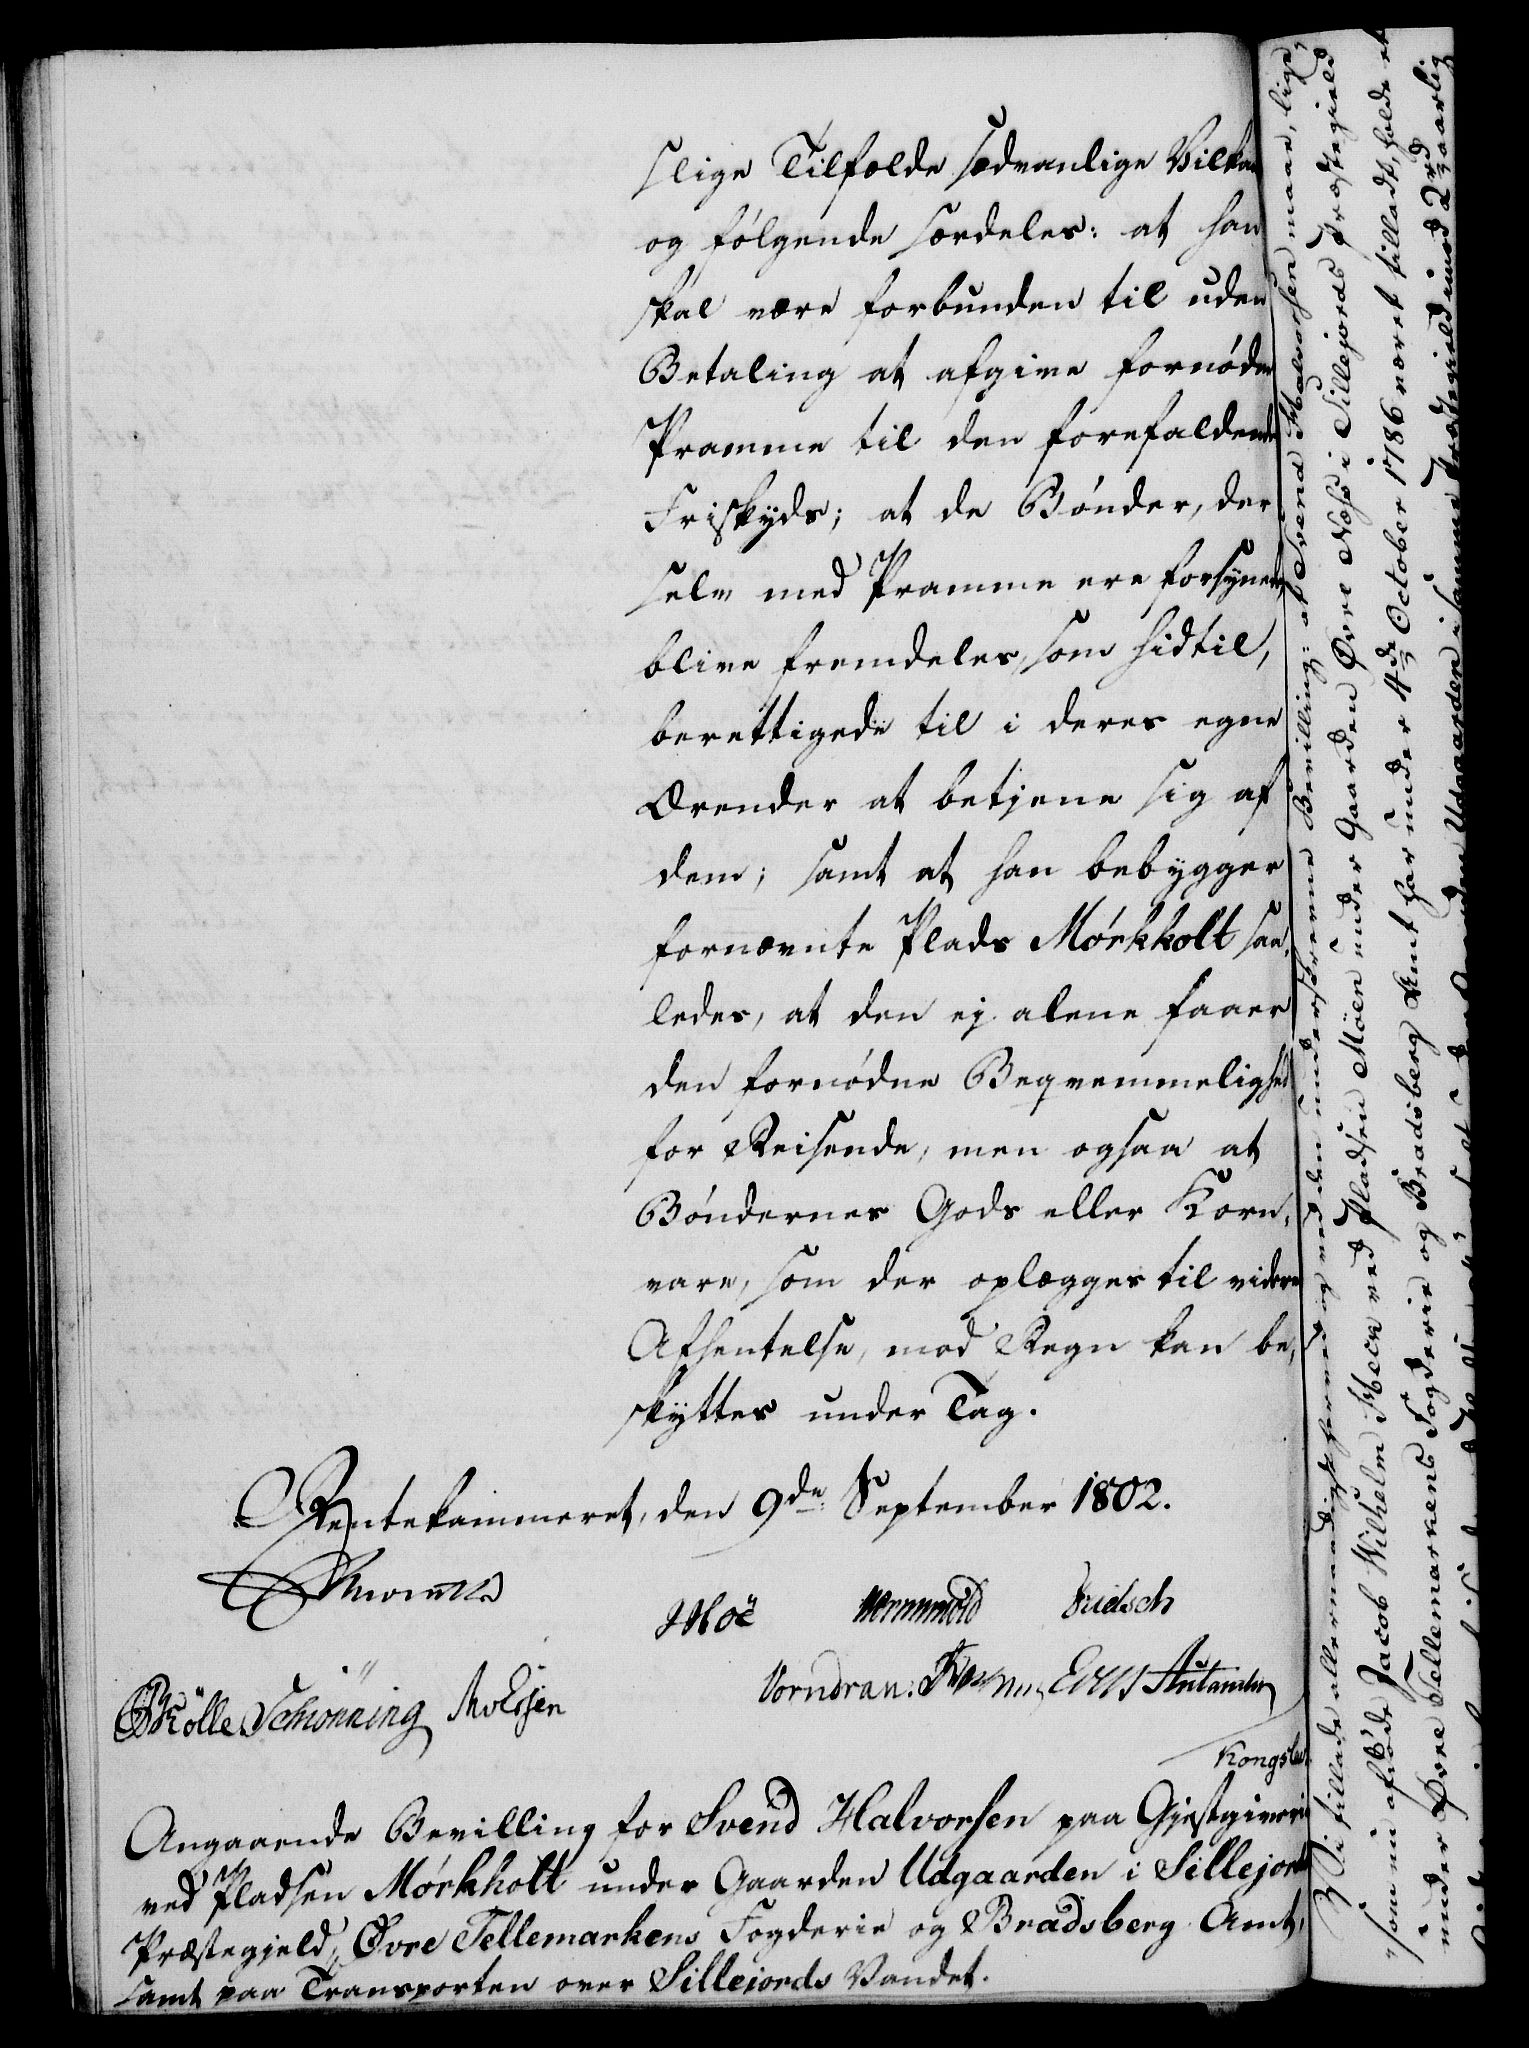 slige Tilfælde sædvanlige Vilkaar
og følgende særdeles: at han
skal være forbunden til uden
Betaling at afgive fornødne
Pramme til den forefaldende
Friskyds; at de Bønder, der
selv med Pramme ere forsynede,
blive fremdeles, som hidtil,
berettigede til i deres egne
Ærender at betjene sig af
dem; samt at han bebygger
fornævnte Plads Mørkholt saa-
ledes, at den ej alene faaer
den fornødne Beqvemmelighed
for Reisende, men ogsaa at
Bøndernes Gods eller Korn-
vare, som der oplægges til videre
Afhentelse, mod Regn kan be-
skyttes under Tag.
Rentekammeret, den 9de September 1802.
Moë Wormskiold Fridsch
Kölle Schiönning Vorndran:
Kongslev
Angaaende Bevilling for Svend Halvorsen paa Gjestgiverie
ved Pladsen Mørkholt under Gaarden Udgaarden i Sillejords
Præstegjeld, Øvre Tellemarkens Fogderie og Bradsberg Amt,
samt paa Transporten over Sillejords Vandet.
Vi tillade allernaadigst herved og ved den underskrevne Bevilling: at Svend Halvorsen maae, lige-
som nu afdøde Jacob Wilhelm ved Pladsen Moen under Gaarden Øvre Næss i Sillejords Præstegield
under Øvre Tellemarkens Fogderie og Bradsberg Amt har under 4de October 1786 været tilladt, holde et
Udgaarden i samme Præstegield imod 2 rd aarlig